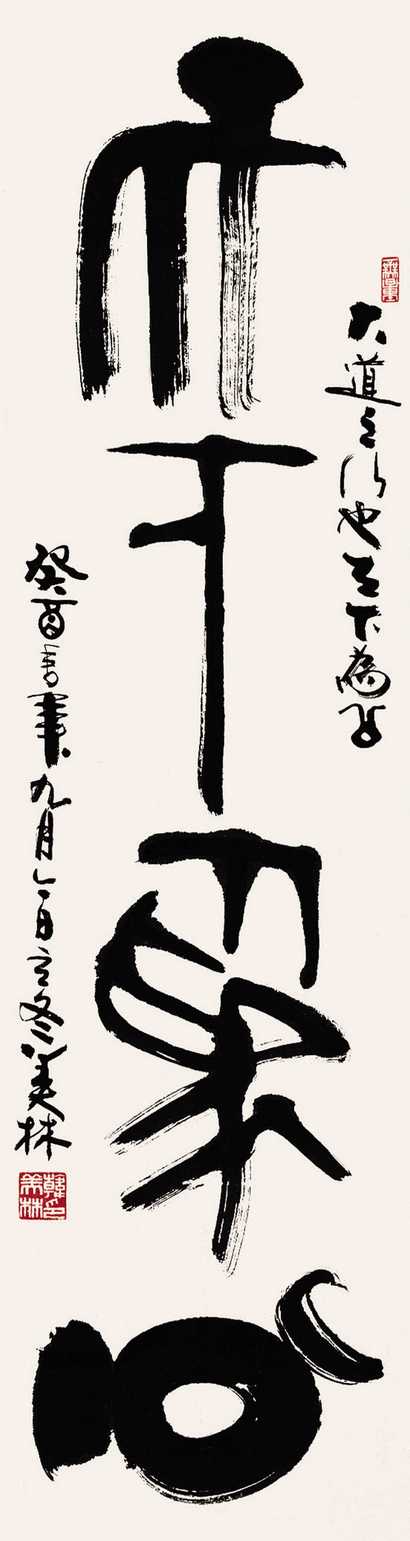 大道之行也天下為公
天下為公
癸酉九月日立冬美林
韓美林印